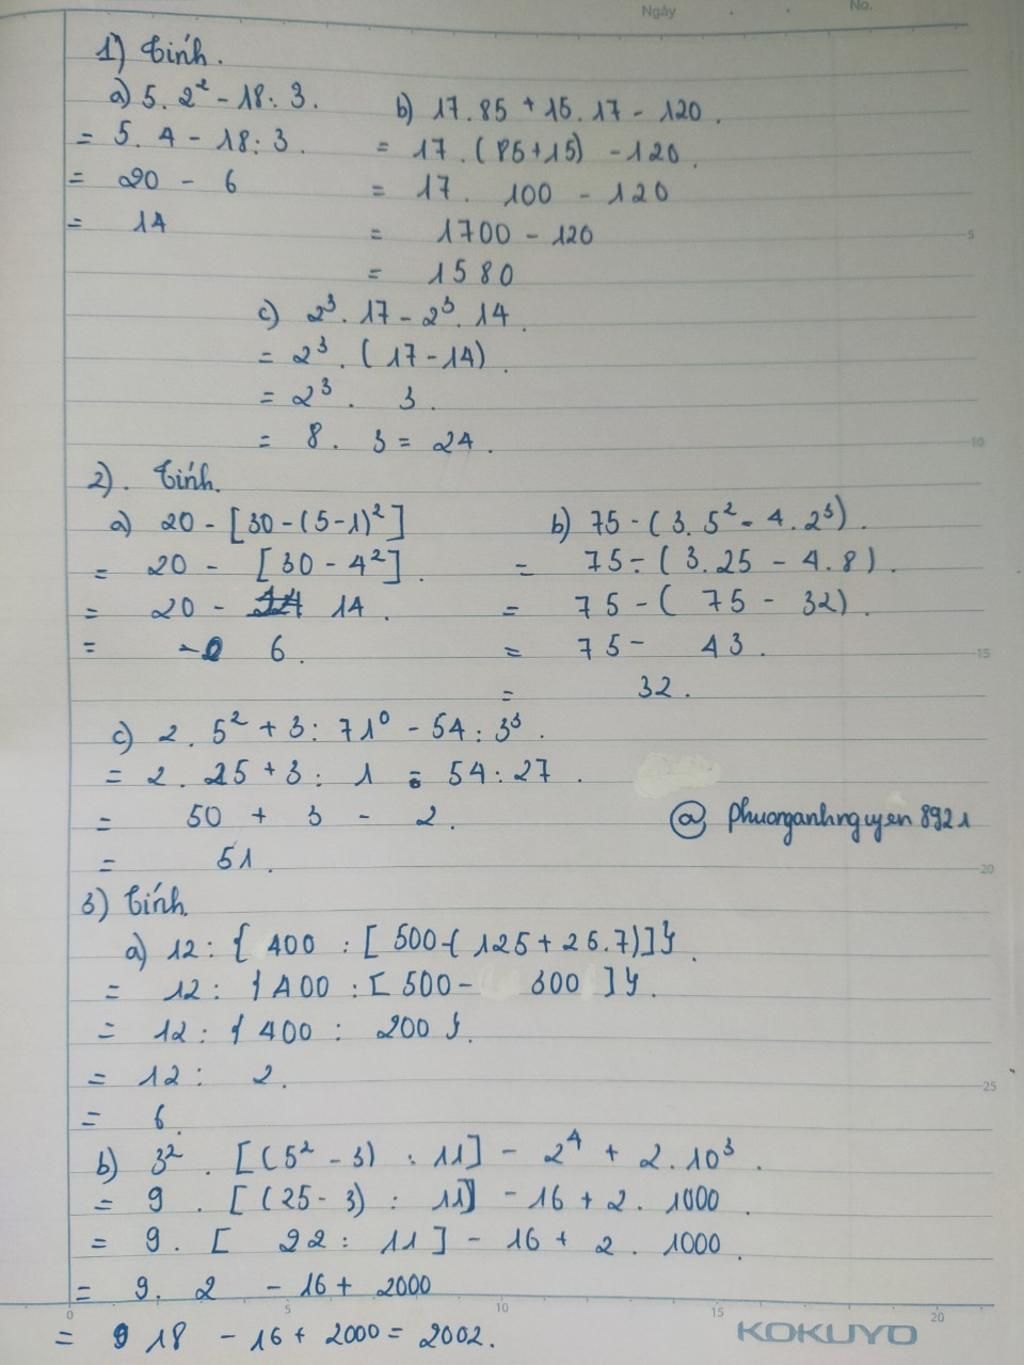 Ngày No.
1) Tính.
a) 5. 2² - 18: 3.
= 5. 4 - 18: 3.
= 20 - 6
= 14
b) 17.85 + 15.17 - 120.
= 17.(85+15) - 120.
= 17. 100 - 120
= 1700 - 120
= 1580
c) 2³. 17 - 2³. 14.
= 2³. (17-14).
= 2³. 3.
= 8. 3 = 24.
2). Tính.
a) 20 - [30 - (5-1)²]
= 20 - [30 - 4²].
= 20 - 14.
= 6.
b) 75 - (3. 5² - 4. 2³).
= 75 - (3.25 - 4.8).
= 75 - (75 - 32).
= 75 - 43.
= 32.
c) 2. 5² + 3: 71⁰ - 54: 3³.
= 2. 25 + 3: 1 - 54: 27.
= 50 + 3 - 2.
= 51.
@ phuonganhnguyen8921
3) Tính.
a) 12: { 400 : [ 500-( 125 + 25.7)]}.
= 12: {400 : [ 500 - 300 ]}.
= 12: {400 : 200}.
= 12: 2.
= 6.
b) 3². [(5² - 3) : 11] - 2⁴ + 2.10³.
= 9. [(25 - 3) : 11] - 16 + 2. 1000.
= 9. [ 22: 11 ] - 16 + 2. 1000.
= 9. 2 - 16 + 2000
= 18 - 16 + 2000 = 2002.
5
10
15
20
25
0 5 10 15 20
KOKUYO